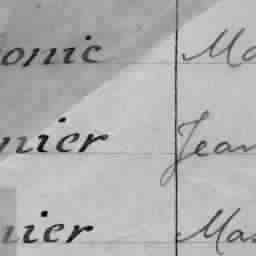 onic Ma
nier Jean
nier Mas